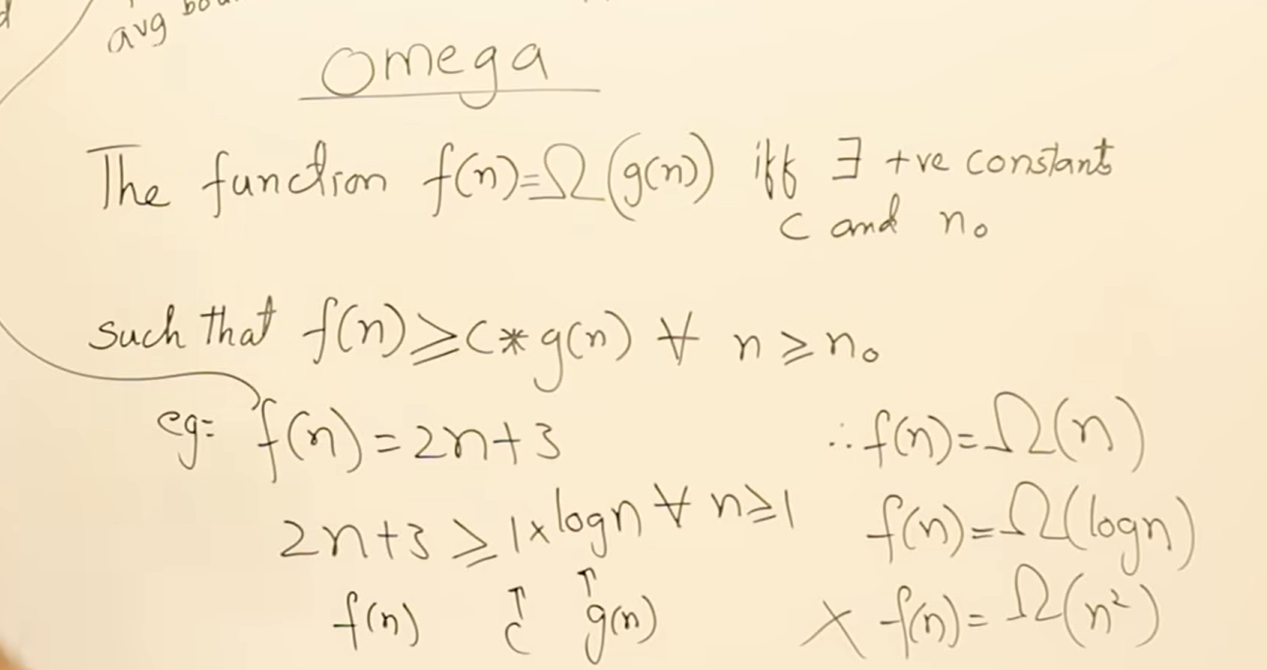 avg
Omega
The function f(n)=Ω(g(n)) iff ∃ +ve constant
c and n₀
such that f(n)≥c*g(n) ∀ n≥n₀
eg= f(n)=2n+3
∴f(n)=Ω(n)
2n+3≥1×logn ∀ n≥1
f(n)=Ω(logn)
f(n) ↑c ↑g(n)
× f(n)=Ω(n²)